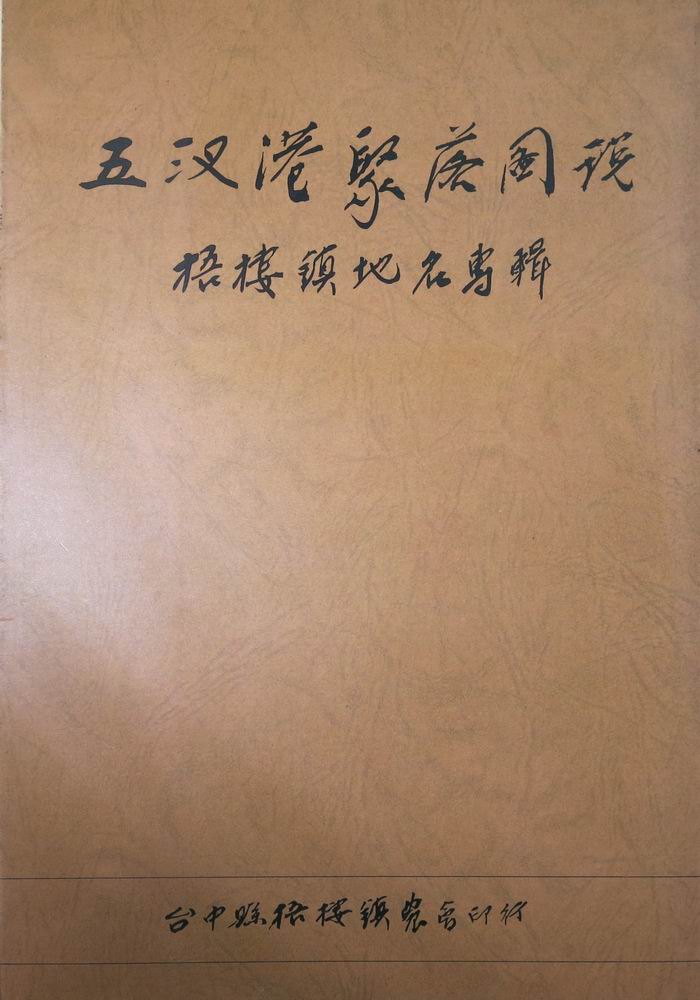 五汊港聚落圖說
梧棲鎮地名專輯
台中縣梧棲鎮農會印行